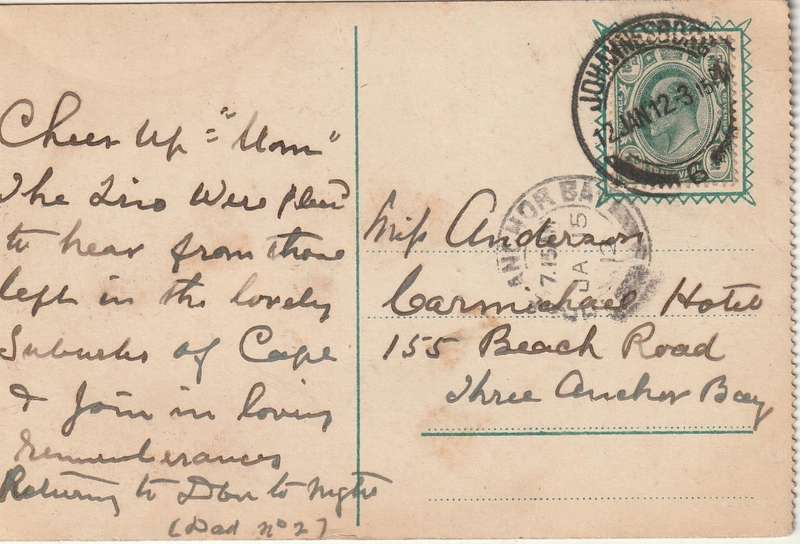 Cheer Up = "Mom"
The Two Were pleased
to hear from those
left in the lovely
Suburbs of Cape
& Join in loving
rememberances
Returning to Dbn to night
(Dad no 2)
JOHANNESBURG
12 JAN 12 - 3 15 PM
Miss Anderson
Carmichael Hotel
155 Beach Road
Three Anchor Bay
ANCHOR BAY
7.15
JA 15
12